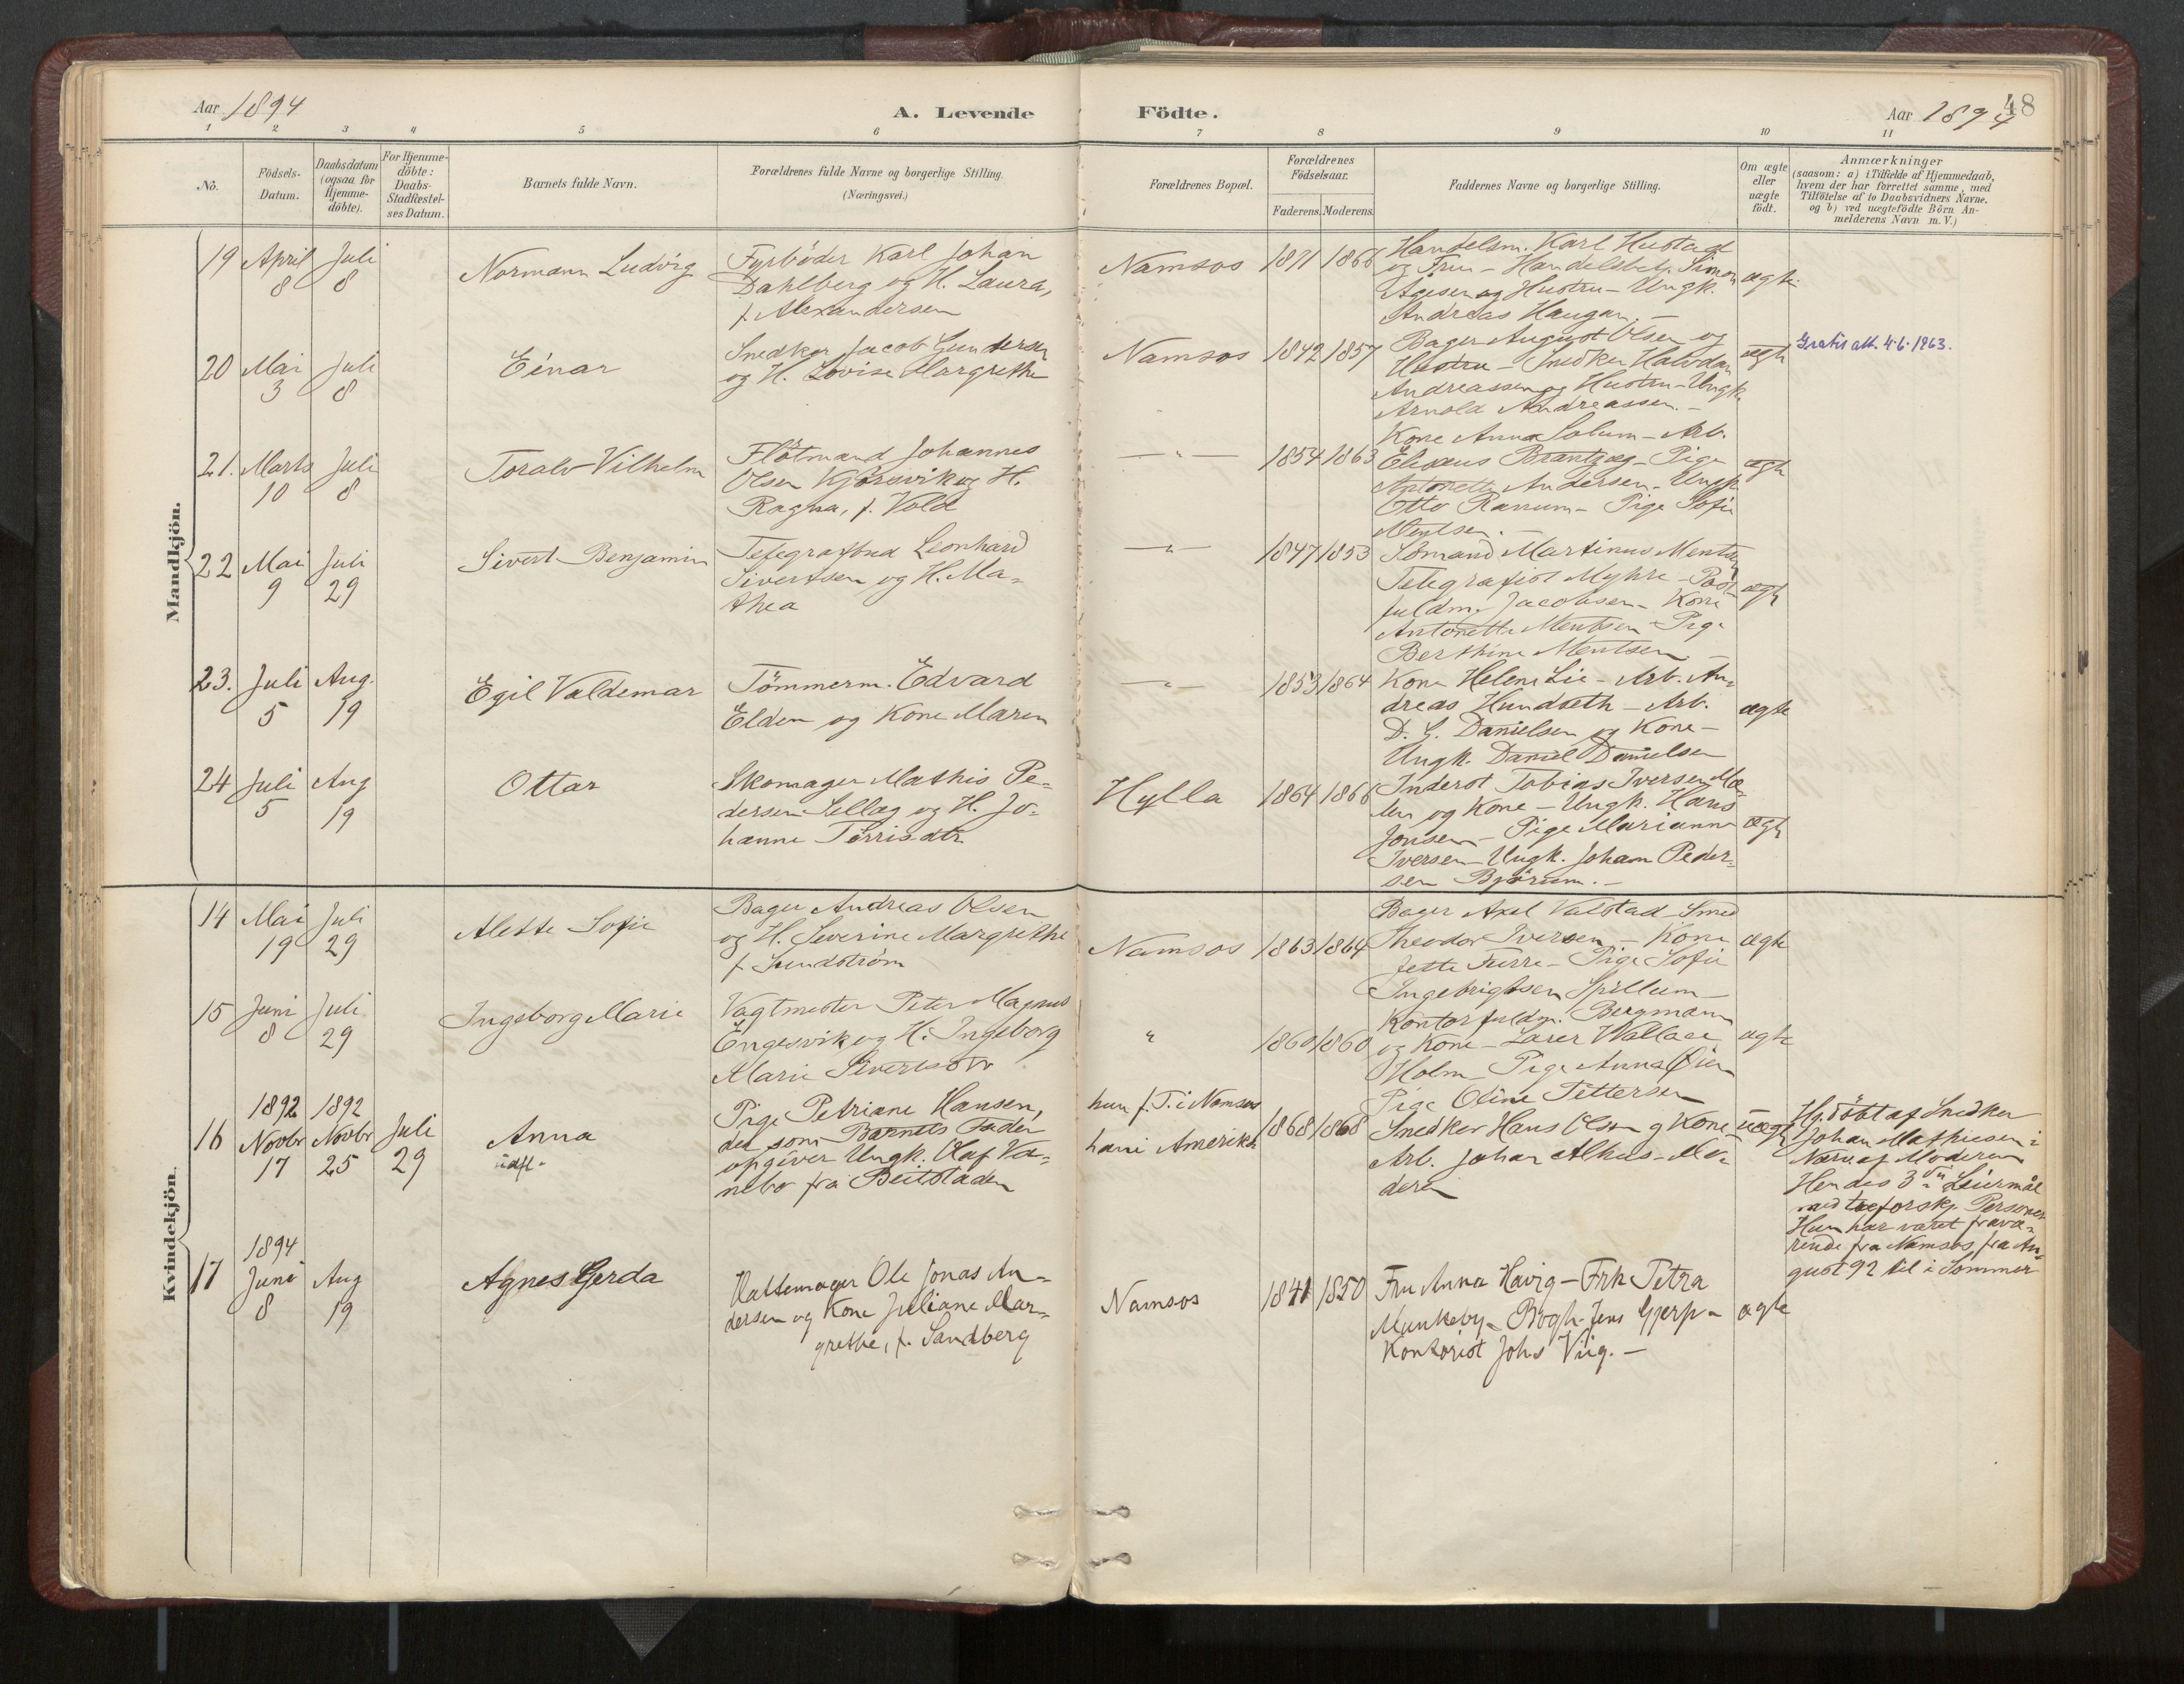 Aar 1894
A. Levende
Födte.
Aar 1894
48
1 2 3 4 5 6 7 8 9 10 11
No.
Födsels-
Datum.
Daabsdatum
(ogsaa for
Hjemme-
döbte).
For Hjemme-
döbte:
Daabs-
Stadfæstel-
ses Datum.
Barnets fulde Navn.
Forældrenes fulde Navne og borgerlige Stilling.
(Næringsvei.)
Forældrenes Bopæl.
Forældrenes
Födselsaar.
Faderens. Moderens.
Faddernes Navne og borgerlige Stilling.
Om ægte
eller
uægte
födt.
Anmærkninger
(saasom: a) i Tilfælde af Hjemmedaab,
hvem der har forrettet samme, med
Tilföielse af to Daabsvidners Navne.
og b) ved uægtefödte Börn An-
melderens Navn m. V.)
Mandkjön.
19 April
8
Juli
8
Normann Ludvig
Fyrböder Karl Johan
Dahlberg og H. Laura,
f. Alexandersen
Namsos
1871 1866
Handelsm. Karl Hustad
og Frue - Handelsbetj. Simon
Agesen og Hustru - Ungk.
Andreas Haugan. -
ægte
20 Mai
3
Juli
8
Einar
Snedker Jacob Gundersen
og H. Lovise Margrethe
Namsos
1842 1857
Bager August Olsen og
Hustru - Snedker Halvdan
Andreassen og Hustru - Ungk.
Arnold Andreassen. -
ægte
Gratis att. 4-6-1963.
21. Marts
10
Juli
8
Toralv Vilhelm
Flötmand Johannes
Olsen Kjörsvik og H.
Ragna, f. Vold
— " —
1854 1863
Kone Anna Solum - Arb.
Elisæus Brantzæg - Pige
Antonette Andersen - Ungk.
Otto Ranum - Pige Sofie
ægte
22 Mai
9
Juli
29
Sivert Benjamin
Telegrafbud Leonhard
Sivertsen og H. Ma-
thea
— " —
1847 1853
Sömand Martinus Mentsen
Telegrafist Myhre - Post-
fuldm. Jacobsen - Kone
Antonette Mentsen - Pige
Berthine Mentsen. -
ægte
23. Juli
5
Aug.
19
Egil Valdemar
Tömmerm. Edvard
Elden og Kone Maren
— " —
1853 1864
Kone Helene Lie - Arb. An-
dreas Hundseth - Arb.
D. G. Danielsen og Kone -
Ungk. Daniel Danielsen
ægte
24 Juli
5
Aug
19
Ottar
Skomager Mathis Pe-
dersen Sellæg og H. Jo-
hanne Tørrisdtr
Hylla
1864 1866
Inderst Tobias Iversen Mæ-
len og Kone - Ungk. Hans
Jonsen - Pige Marianne
Iversen - Ungk. Johan Peder-
sen Bjørum. -
ægte
Kvindekjön.
14 Mai
19
Juli
29
Alette Sofie
Bager Andreas Olsen
og H. Severine Margrethe
f. Sundström
Namsos
1863 1864
Bager Axel Valstad - Smed
Theodor Iversen - Kone
Jette Furre - Pige Sofie
Ingebrigtsen Spillum -
ægte
15 Juni
8
Juli
29
Ingeborg Marie
Vagtmester Peter Magnus
Engesvik og H. Ingeborg
Marie Sivertsdtr
"
1860 1860
Kontorfuldm. Bergmann
og Kone - Laser Wallace
Holm - Pige Anna Øien
Pige Oline Pettersen
ægte
16
1892
Novbr
17
1892
Novbr
25
Juli
29
Anna
udfl.
Pige Petriane Hansen,
der som Barnets Fader
opgiver Ungk. Olaf Va-
nebo fra Beitstaden
hun f. T. i Namsos
han i Amerika
1868 1868
Snedker Hans Olsen og Kone -
Arb. Johan Alhus - Mo-
deren
uægte
Hj. döbt af Snedker
Johan Mathiesen i
Nærv. af Moderen
Hendes 3die Leiermål
med tre forskj. Personer
Hun har været fravæ-
rende fra Namsos, fra Au-
gust 92 til i Sommer
17
1894
Juni
8
Aug
19
Agnes Gerda
Hattemager Ole Jonas An-
dersen og Kone Juliane Mar-
grethe, f. Sandberg
Namsos
1841 1850
Fru Anna Havig - Frk Petra
Munkeby - Bogh. Jens Gjerp -
Kontorist Johs Viig. -
ægte